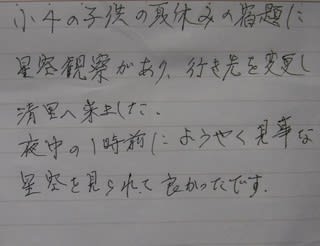 小4の子供の夏休みの宿題に
星空観察があり、行き先を変更し
清里へ来ました。
夜中の1時前にようやく見事な
星空を見られて良かったです。